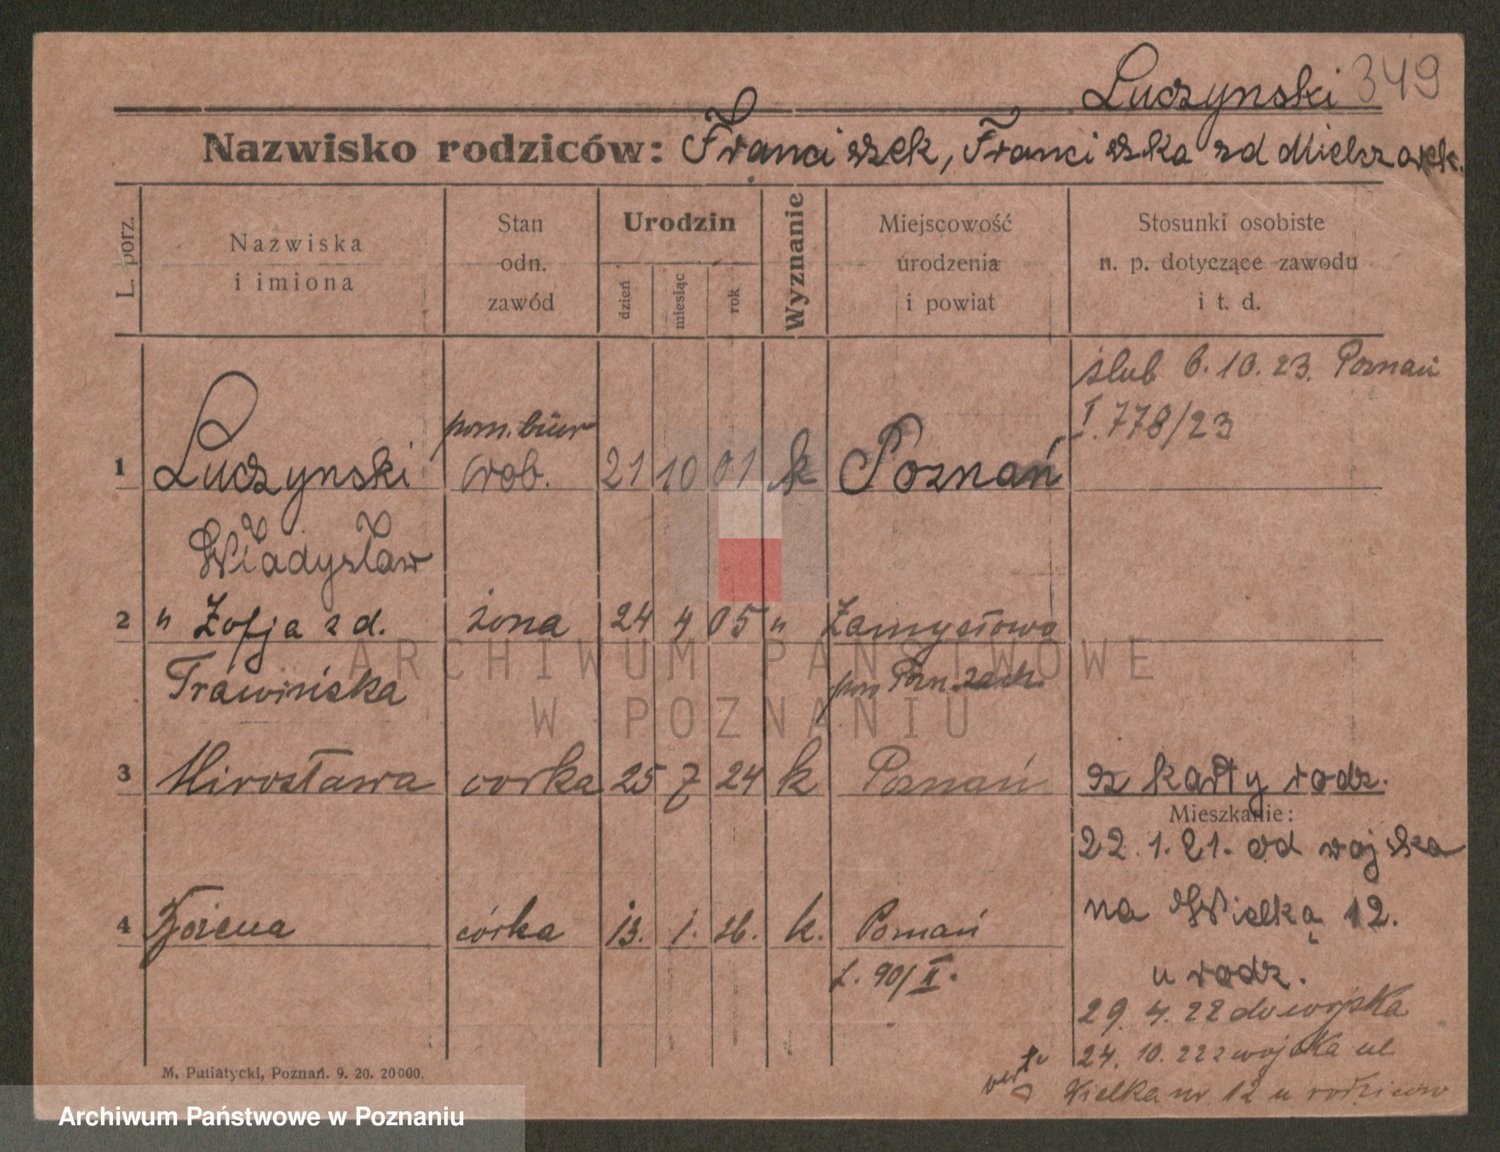 Luczynski 349
Nazwisko rodziców: Franciszek, Franciszka zd Mielczarek.
L. porz.
Nazwiska
i imiona
Stan
odn.
zawód
Urodzin
dzień
miesiąc
rok
Wyznanie
Miejscowość
urodzenia
i powiat
Stosunki osobiste
n. p. dotyczące zawodu
i t. d.
ślub 6.10.23. Poznań
I.778/23
pom. biur
1 Luczynski rob. 21 10 01 k Poznań
Władysław
2 " Zofja zd. żona 24 4 05 " Zamysłowo
Trawińska pow Pozn. zach.
3 Mirosława corka 25 7 24 k Poznań
z karty rodz.
Mieszkanie:
22.1.21. od wojska
na Wielką 12.
u rodz.
4 Bożena córka 13. 1. 26. k. Poznań
L. 90/II.
29. 4. 22 do wojska
24. 10. 22 z wojska ul
Wielka nr. 12 u rodziców
verte
M. Putiatycki, Poznań. 9. 20. 20000.
ARCHIWUM PAŃSTWOWE
W POZNANIU
Archiwum Państwowe w Poznaniu